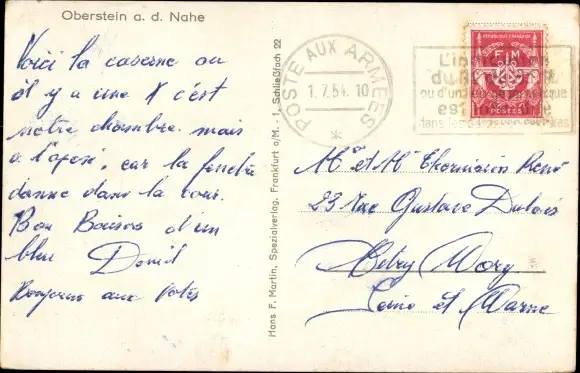 Oberstein a. d. Nahe
Voici la caserne ou
il y a une X c'est
notre chambre mais
a l'oposé, car la fenetre
donne dans la cour.
Bon Baisers d'un
bleu Daniel
Bonjour aux Potes
Hans F. Martin, Spezialverlag, Frankfurt a/M. - 1, Schließfach 22
POSTE AUX ARMEES
1.7.54. 10
REPUBLIQUE FRANÇAISE
F M
POSTES
L'in
du
ou d'un
est
dans
Mr et Me Thomission René
23 Rue Gustave Dubois
Mory
Seine et Marne